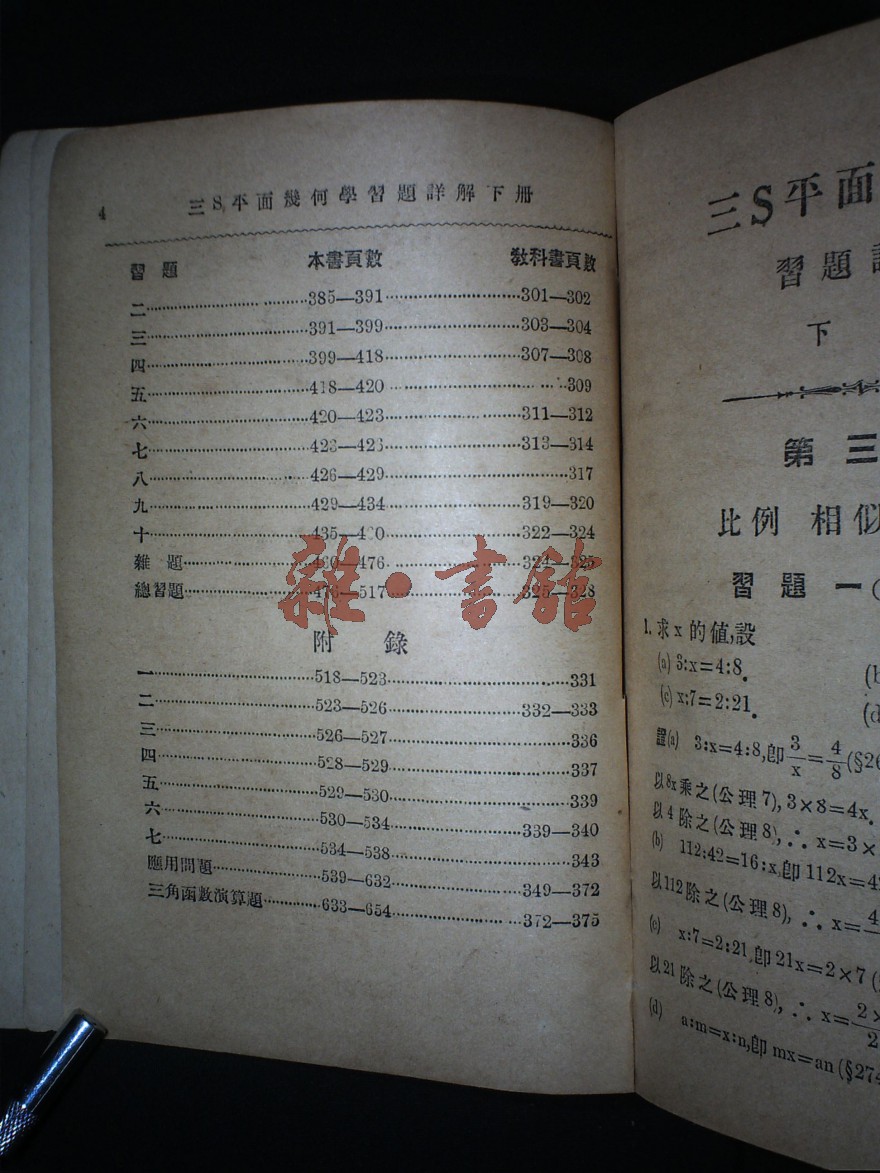 4 三S平面幾何學習題詳解下册
習題 本書頁數 教科書頁數
二 385—391 301—302
三 391—399 303—304
四 399—418 307—308
五 418—420 309
六 420—423 311—312
七 313—314
八 426—429 317
九 429—434 319—320
十 322—324
雜題 476 324—325
總習題 476—517 325—328
雜·書館
附錄
一 518—523 331
二 523—526 332—333
三 526—527 336
四 528—529 337
五 529—530 339
六 530—534 339—340
七 534—538 343
應用問題 539—632 349—372
三角函數演算題 633—654 372—375
三S平面
習題
下
第三
比例 相似
習題一(
1.求x的値,設
(a) 3:x=4:8. (b
(c) x:7=2:21. (d
證(a) 3:x=4:8,卽3/x=4/8(§26
以8x乘之(公理7), 3×8=4x.
以4除之(公理8),∴x=3×
(b) 112:42=16:x,卽112x=4
以112除之(公理8),∴x=4
(c) x:7=2:21,卽21x=2×7(
以21除之(公理8),∴x=2×/2
(d) a:m=x:n,卽mx=an(§274